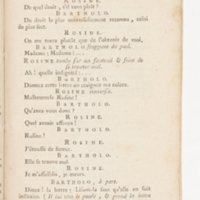 ROSINE.
De quel droit, s'il vous plaît ?
BARTHOLO.
Du droit le plus universellement reconnu, celui
du plus fort.
ROSINE.
On me tuera plutôt que de l'obtenir de moi.
BARTHOLO frappant du pied.
Madame ! Madame ! ...
ROSINE tombe sur un fauteuil & feint de
se trouver mal.
Ah ! quelle indignité ! ...
BARTHOLO.
Donnez cette lettre ou craignez ma colere.
ROSINE renversée.
Malheureuse Rosine !
BARTHOLO.
Qu'avez vous donc ?
ROSINE.
Quel avenir affreux !
BARTHOLO.
Rosine !
ROSINE.
J'étouffe de fureur.
BARTHOLO.
Elle se trouve mal.
ROSINE.
Je m'affoiblis, je meurs.
BARTHOLO, à part.
Dieux ! la lettre ! Lisons-la sans qu'elle en soit
instruite. ( Il lui tâte le pouls, & prend la lettre